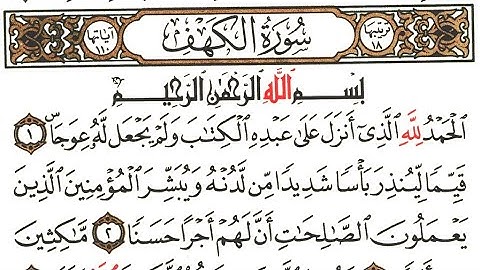 ترتيبها ١٨ سورة الكهف آياتها ١١٠
بِسْمِ ٱللَّهِ ٱلرَّحْمَٰنِ ٱلرَّحِيمِ
ٱلْحَمْدُ لِلَّهِ ٱلَّذِىٓ أَنزَلَ عَلَىٰ عَبْدِهِ ٱلْكِتَٰبَ وَلَمْ يَجْعَل لَّهُۥ عِوَجَاۜ ١
قَيِّمًا لِّيُنذِرَ بَأْسًا شَدِيدًا مِّن لَّدُنْهُ وَيُبَشِّرَ ٱلْمُؤْمِنِينَ ٱلَّذِينَ
يَعْمَلُونَ ٱلصَّٰلِحَٰتِ أَنَّ لَهُمْ أَجْرًا حَسَنًا ٢ مَّٰكِثِينَ